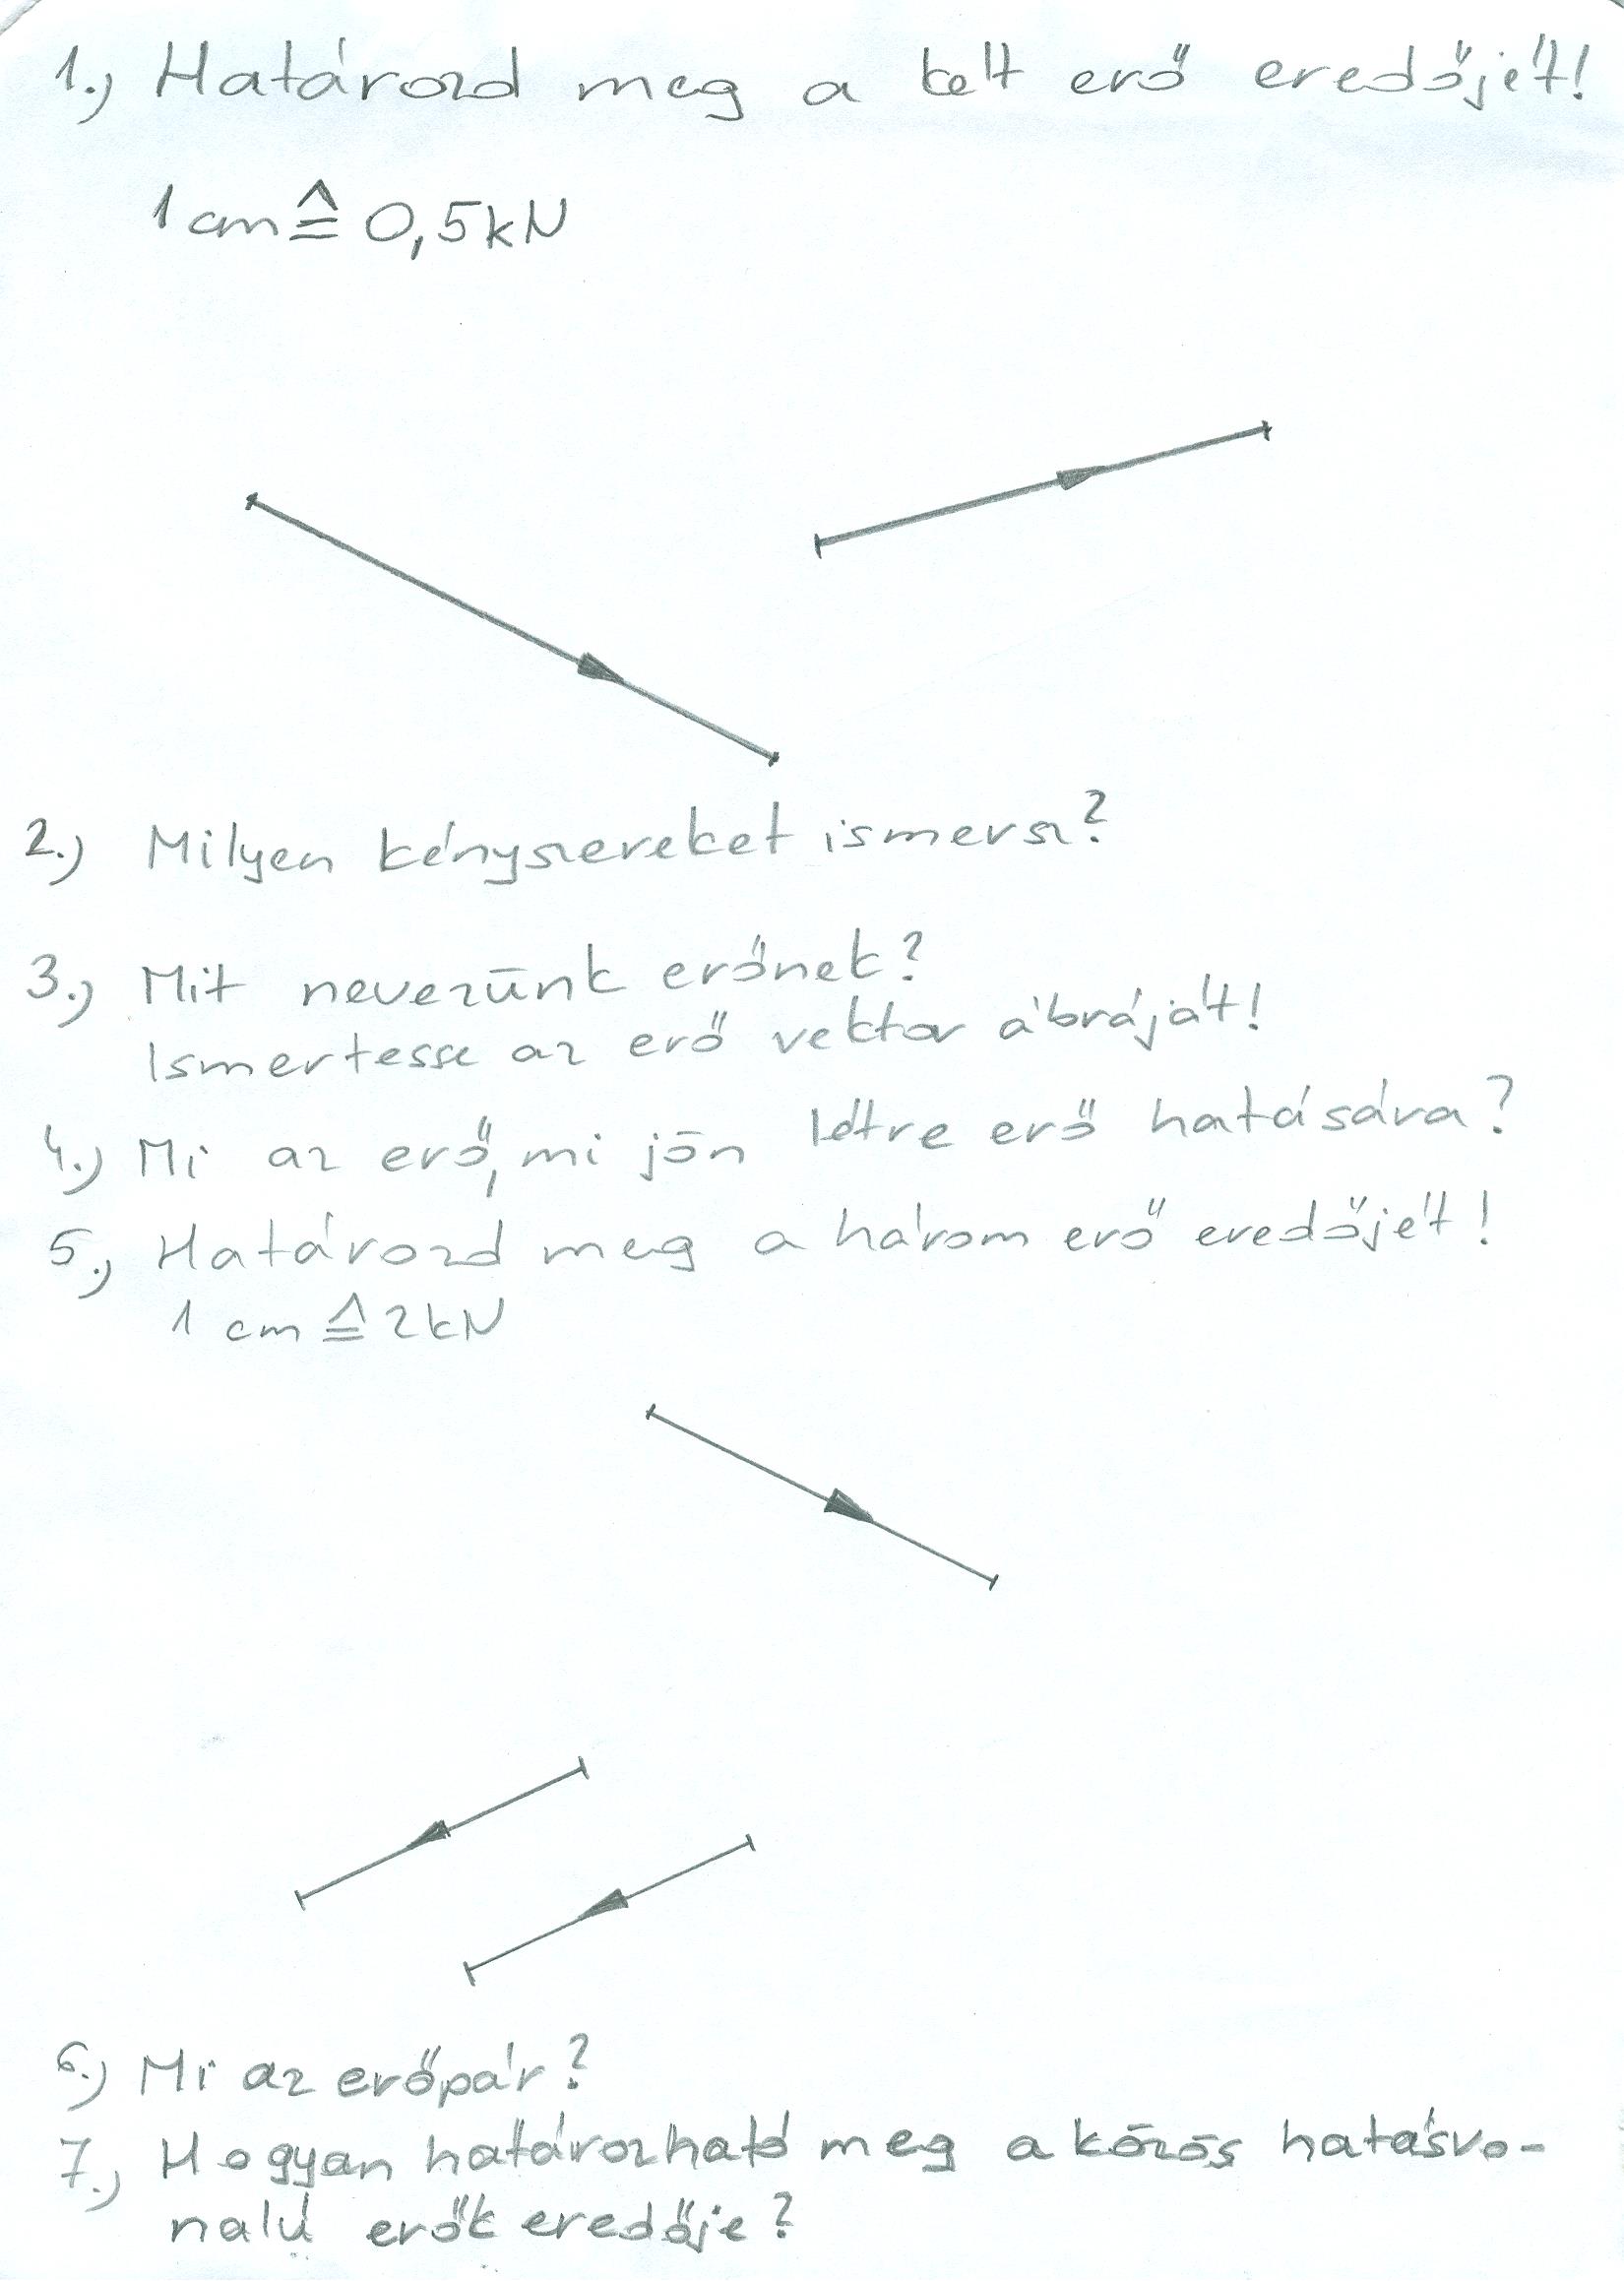 1.) Határozd meg a két erő eredőjét!
1 cm ≙ 0,5 kN
2.) Milyen kényszereket ismersz?
3.) Mit nevezünk erőnek?
Ismertesse az erő vektor ábráját!
4.) Mi az erő, mi jön létre erő hatására?
5.) Határozd meg a három erő eredőjét!
1 cm ≙ 2 kN
6.) Mi az erőpár?
7.) Hogyan határozható meg a közös hatásvo-
nalú erők eredője?